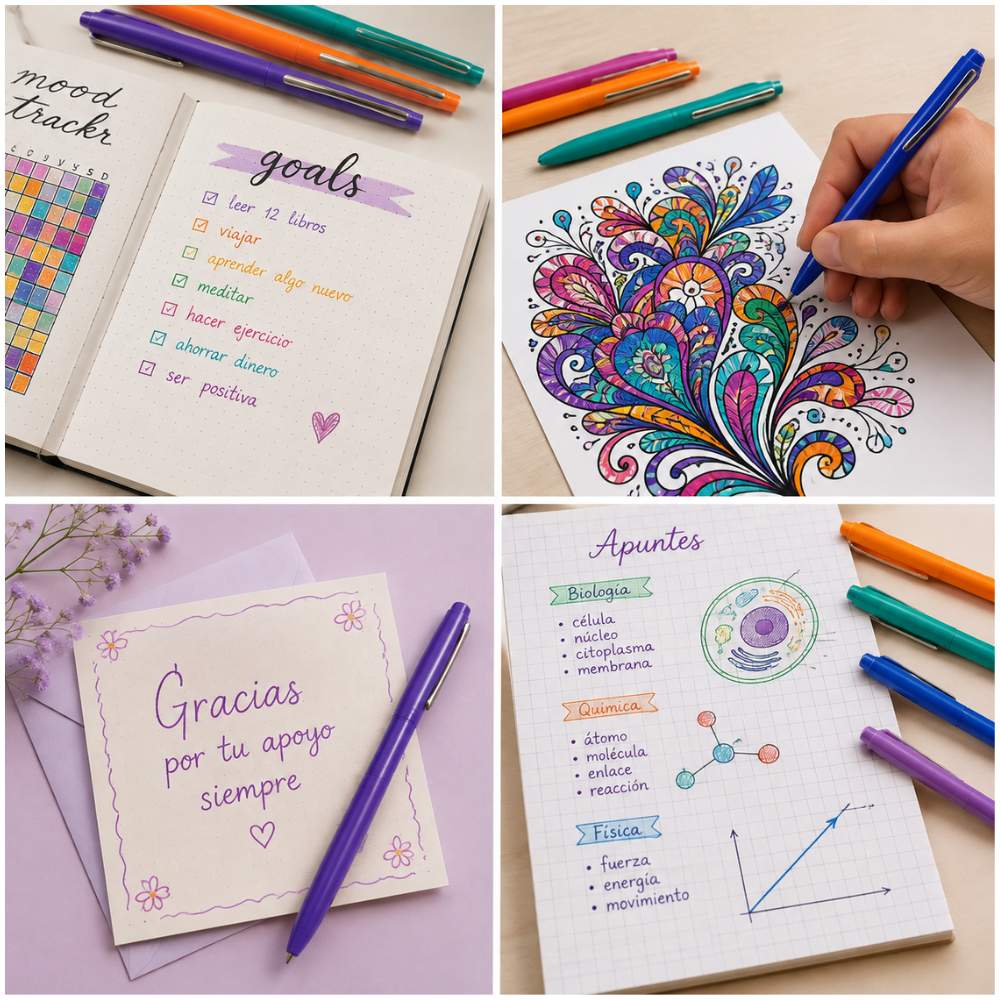 mood
trackr
c g y y y s D
goals
leer 12 libros
viajar
aprender algo nuevo
meditar
hacer ejercicio
ahorrar dinero
ser positiva
Gracias
por tu apoyo
siempre
Apuntes
Biología
• célula
• núcleo
• citoplasma
• membrana
Química
• átomo
• molécula
• enlace
• reacción
Física
• fuerza
• energía
• movimiento